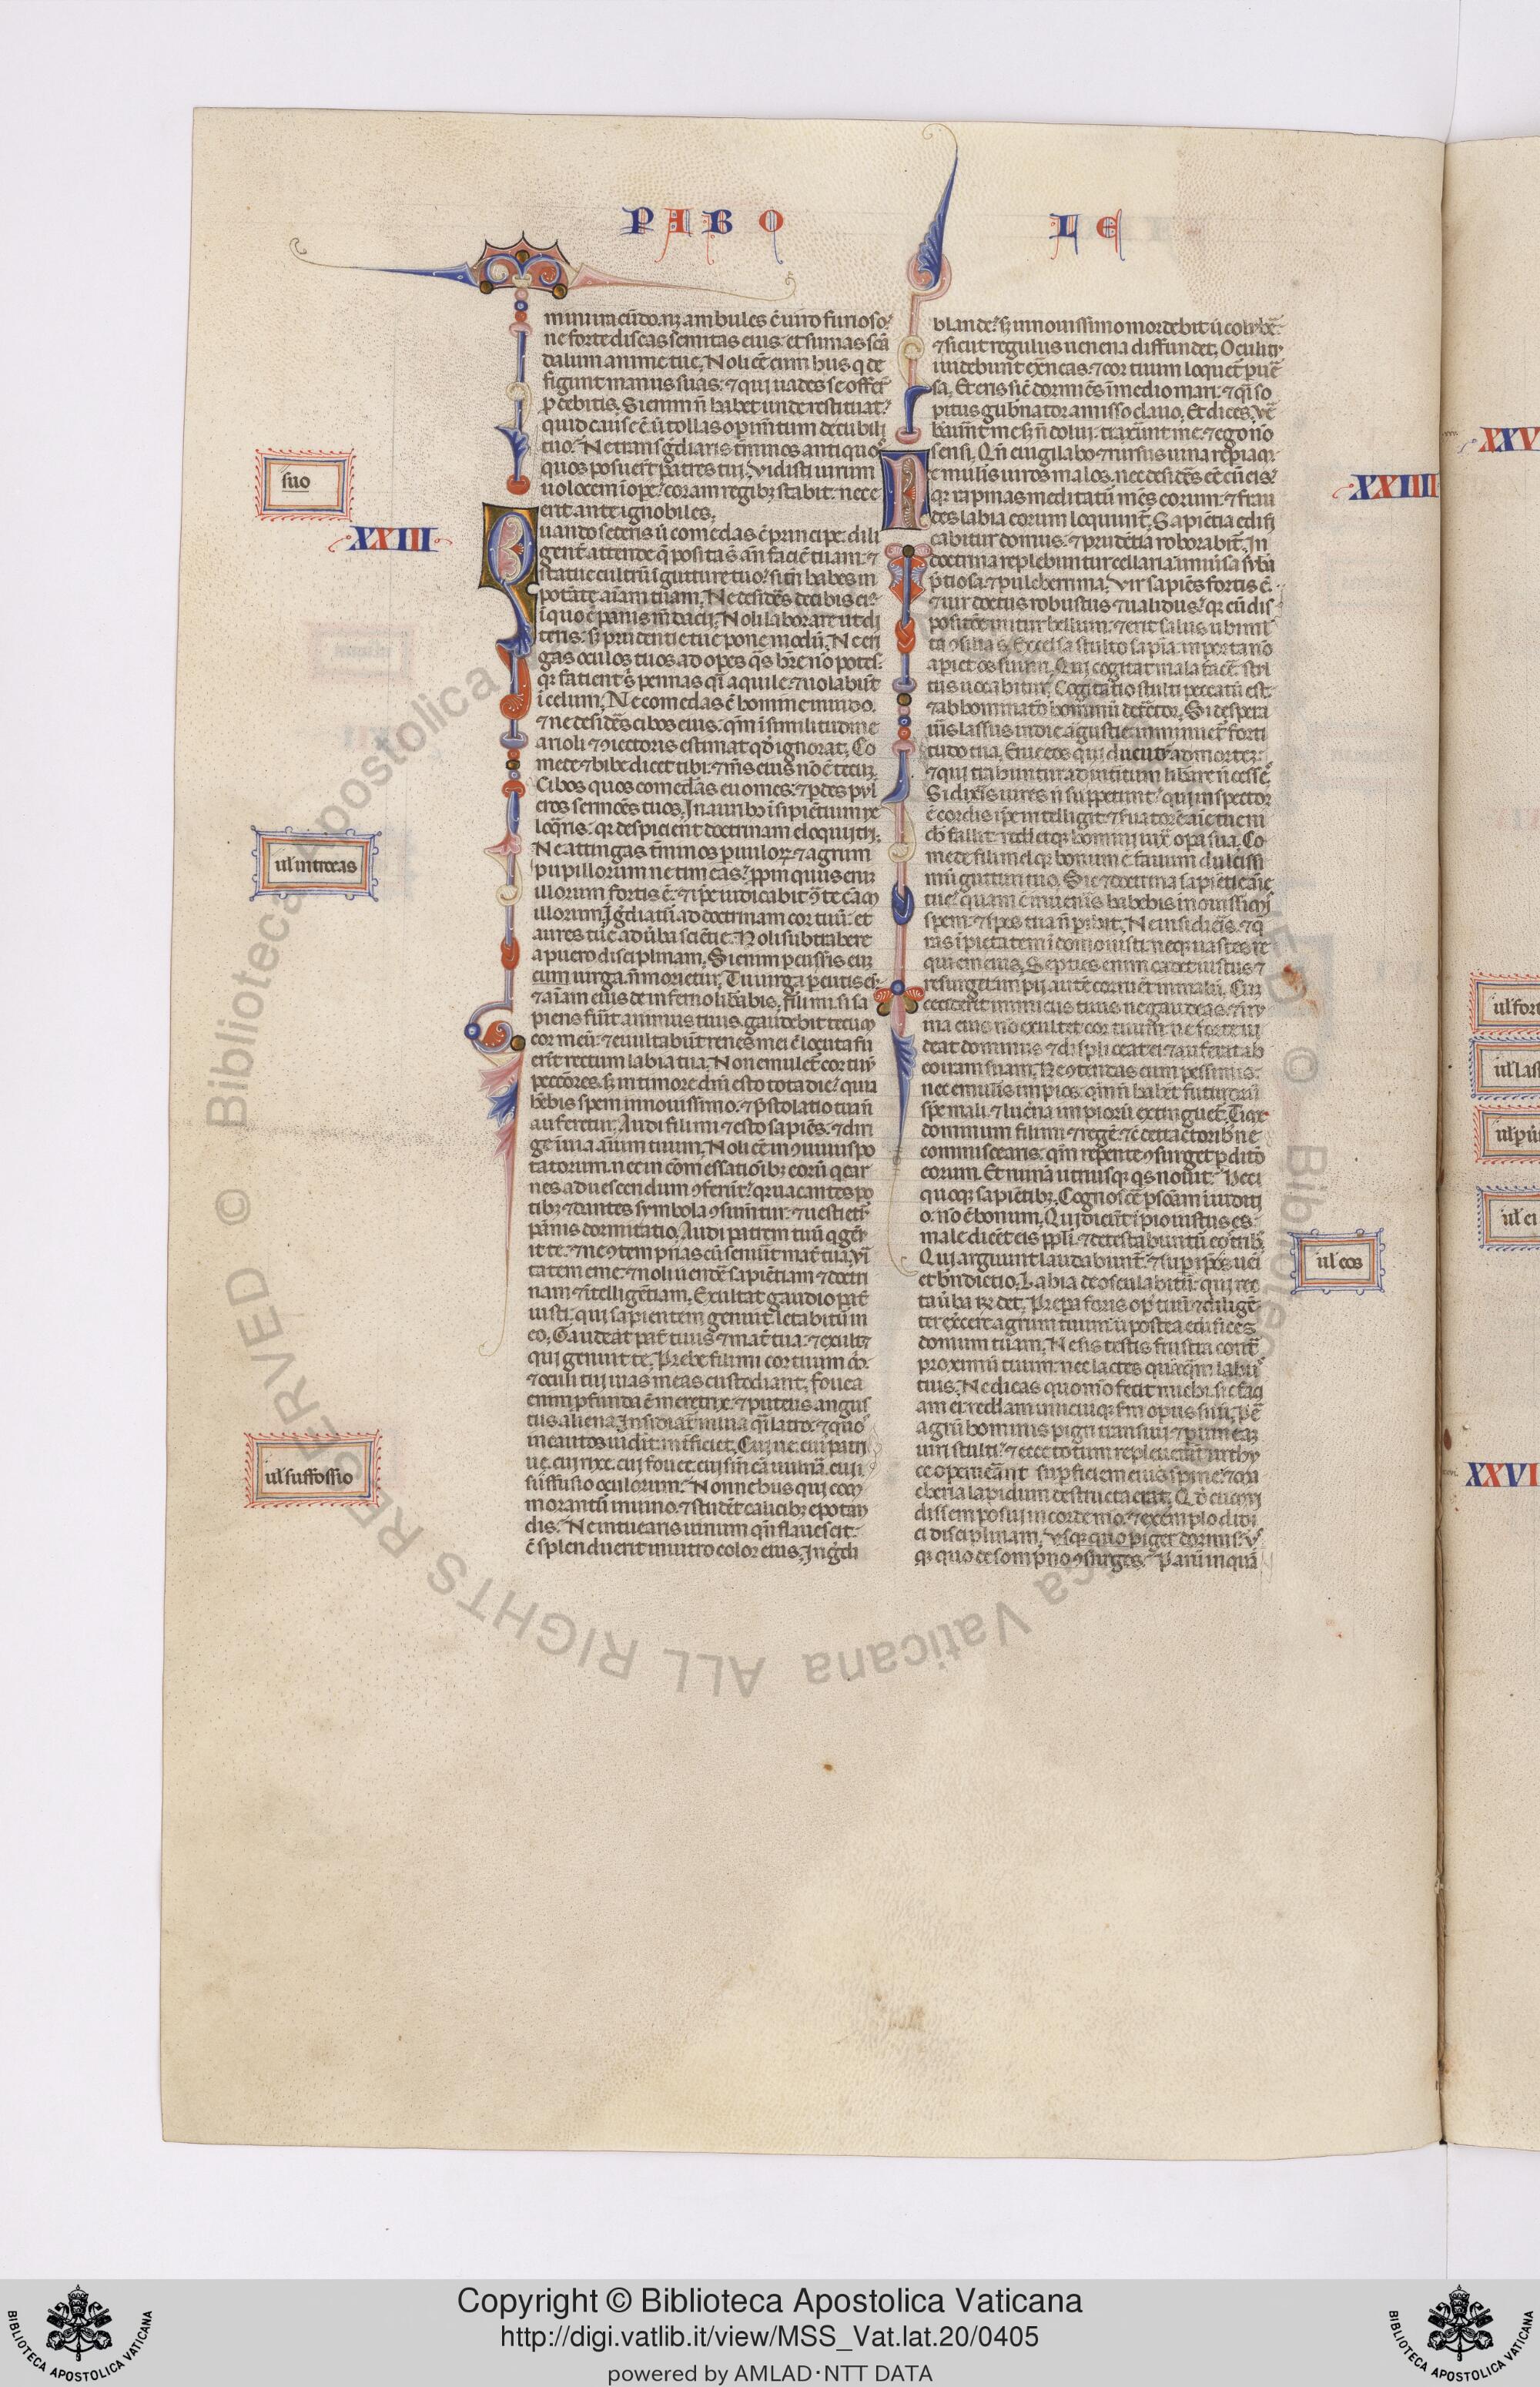 PABO LE
mini iracundo. neqꝫ ambules cū uiro furioso.
ne forte discas semitas eius. et sumas scā
dalum anime tue. Noli eē cum hus q de
figunt manus suas. ⁊ qui uades se offerūt
p debitis. Si enim n̄ habet unde restituat.
quid cause ē ut tollas opim̄tum de cubili
tuo. Ne transgrediaris t̄minos antiquos
quos posuerūt patres tui. Vidisti uirum
uelocem ī ope. coram regibꝫ stabit. nec e
rit ante ignobiles.
uando sederis ut comedas cū principe. dili
gent̄ attende q̄ posita s̄ an̄ faciē tuam. ⁊
statue cultrū ī gutture tuo. si tn̄ habes in
potate aīam tuam. Ne desideres de cibis ei
ī quo ē panis mdacij. Noli laborare ut di
teris. sꝫ prudentie tue pone modū. Ne eri
gas oculos tuos ad opes q̄s hr̄e nō potes.
qꝛ facient s̄ pennas q̄i aquile. ⁊ uolabūt
ī celum. Ne comedas cū homine inuido.
⁊ ne desideres cibos eius. qm̄ ī similitudine
arioli ⁊ ꝯiectoris estimat qd̄ ignorat. Co
mede ⁊ bibe dicet tibi. ⁊ mēs eius nō ē tecū.
Cibos quos comedas euomes. ⁊ perdes pul
cros sermōes tuos. In auribꝫ īsipiētium ne
loq̄ris. qꝛ despicient doctrinam eloquij tui.
Ne attingas t̄minos paruuloꝝ. ⁊ agrum
pupillorum ne introeas. ppinquus enī
illorum fortis ē. ⁊ ipē iudicabit ꝯ te cām
illorum. Ingrediatur ad doctrinam cor tuū. et
aures tue ad uba scientie. Noli subtrahere
a puero disciplinam. Si enim pcusseris eum
cum uirga n̄ morietur. Tu uirga pcuties eū
⁊ aīam eius de inferno liberabis. Fili mi si sa
piens fuerit animus tuus. gaudebit tecum
cor meū. ⁊ exultabūt renes mei cū locuta fu
erīt rectum labia tua. Non emulet̄ cor tuum
peccatores. sꝫ in timore dn̄i esto tota die. quia
hēbis spem in nouissimo. ⁊ pstolatio tua n̄
auferetur. Audi fili mi ⁊ esto sapiēs. ⁊ diri
ge in uia aīum tuum. Noli eē in ꝯuiuiis po
tatorum. nec in comessationibꝫ eorū q car
nes ad uescendum ꝯferūt. qꝛ uacantes po
tibꝫ ⁊ dantes symbola ꝯsumentur. ⁊ uestietur
pannis dormitatio. Audi patrem tuū q genu
it te. ⁊ ne ꝯtempnas cū senuit mat̄ tua. Ve
ritatem eme. ⁊ noli uende sapiētiam ⁊ doctri
nam ⁊ intelligētiam. Exultat gaudio pat̄
iusti. qui sapientem genuit letabitur in
eo. Gaudeat pat̄ tuus ⁊ mat̄ tua. ⁊ exultet
qui genuit te. Prebe fili mi cor tuum m̄.
⁊ oculi tui uias meas custodiant. Fouea
enim pfunda ē meretrix. ⁊ puteus angus
tus aliena. Insidiat̄ in uia q̄i latro. ⁊ quos
incautos uiderit intficiet. Cui ue. cui patri
ue. cui rixe. cui fouee. cui sine cā uulnera. cui
suffusio oculorum. Nonne hiis qui com
morantur in uino. ⁊ student calicibꝫ epotan
dis. Ne intuearis uinum qn̄ flauescit.
cū splenduerit in uitro color eius. Ingredi
blande. sꝫ in nouissimo mordebit ut coluber.
⁊ sicut regulus uenena diffundet. Oculi tui
uidebunt extraneas. ⁊ cor tuum loquet̄ puer
sa. Et eris sic̄ dormiēs ī medio mari. ⁊ q̄i so
pitus gubnator amisso clauo. Et dices. Ver
berauerunt me sꝫ n̄ dolui. traxerunt me. ⁊ ego nō
sensi. Qn̄ euigilabo ⁊ rursus uina repiam.
e emuleris uiros malos. nec desideres eē cū eis.
qꝛ rapinas meditatur mens eorum. ⁊ frau
des labia eorum loquunt̄. Sapiētia edifi
cabitur domus. ⁊ prudētia roborabit̄. In
doctrina replebuntur cellaria. uniūsa subā
p̄tiosa. ⁊ pulcherrima. Vir sapiēs fortis ē.
⁊ uir doctus robustus ⁊ ualidus. qꝛ cū dis
positōe initur bellum. ⁊ erit salus ubi mul
ta ꝯsilia s̄. Excelsa stulto sapīa. in porta nō
aperiet os suum. Qui cogitat mala facere. stul
tus uocabitur. Cogitatio stulti peccatū est.
⁊ abhominatō hominū detractor. Si despera
ueris lassus in die angustie. iminuet̄ forti
tudo tua. Erue eos qui ducuntur ad mortem.
⁊ qui trahuntur ad interitum liberare n̄ cesses.
Si dixeris uires n̄ suppetunt. qui inspector
ē cordis ipē intelligit. ⁊ seruatorē aīe tue ni
chil fallit. reddetqꝫ homini iuxta opera sua. Co
mede fili mi mel qꝛ bonum ē. ⁊ fauum dulcissi
mū gutturi tuo. Sic ⁊ doctrina sapiētie aīe
tue. quam cū inueneris habebis in nouissimis
spem. ⁊ spes tua n̄ pibit. Ne insidieris ⁊ q̄
ras īpietatem ī domo iusti. neqꝫ uastes re
quiem eius. Septies enim cadet iustus ⁊
resurget. impij autē corruēt in malū. Cum
ceciderit inimicus tuus ne gaudeas. ⁊ in rui
na eius nō exultet cor tuum. ne forte ui
deat dominus ⁊ displiceat ei. ⁊ auferat ab
eo iram suam. Ne ꝯtendas cum pessimis.
nec emuleris impios. qm̄ n̄ habēt futuroꝝ
spē mali. ⁊ lucerna impiorū extinguet̄. Time
dominum fili mi ⁊ regē. ⁊ cū detractoribꝫ ne
commiscearis. qm̄ repente ꝯsurget pditō
eorum. Et ruinā utriusqꝫ qs nouit. Hec
quoqꝫ sapiētibꝫ. Cognoscē psonam in iudici
o. nō ē bonum. Qui dicūt īpio iustus es.
male dicēt eis ppli. ⁊ detestabuntur eos tribꝫ.
Qui arguunt laudabunt̄. ⁊ sup ipos ueni
et bn̄dictio. Labia deosculabitur. qui rec
ta uba rn̄det. Prepara foris opus tuū ⁊ diligē
ter exerce agrum tuum. ut postea edifices
domum tuam. Ne sis testis frustra contra
proximū tuum. nec lactes quēqm̄ labiis
tuis. Ne dicas quomō fecit michi. sic faci
am ei. reddam unicuiqꝫ scdm opus suū. Per
agrum hominis pigri transiui. ⁊ per uineam
uiri stulti. ⁊ ecce totum repleuerāt urtice
ce. opuerant supficiem eius spine. ⁊ ma
cheria lapidum destructa erat. Qd̄ cum ui
dissem posui in corde meo. ⁊ exemplo didi
ci disciplinam. Vsqꝫ quo piger dormis. Vs
qꝫ quo de sompno ꝯsurges. Parum inquam
suo
XXIII
ul' introeas
ul' suffossio
XXIIII
ul' eos
XXV
XXVI
Copyright © Biblioteca Apostolica Vaticana
http://digi.vatlib.it/view/MSS_Vat.lat.20/0405
powered by AMLAD·NTT DATA
BIBLIOTECA APOSTOLICA VATICANA
BIBLIOTECA APOSTOLICA VATICANA